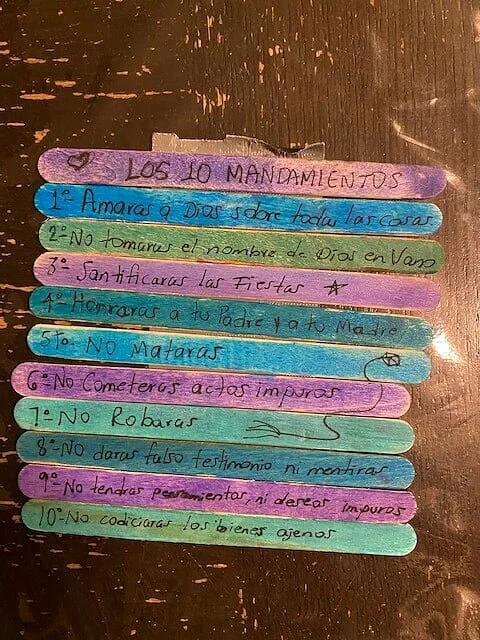 LOS 10 MANDAMIENTOS
1º- Amaras a Dios sobre todas las cosas
2º- No tomaras el nombre de Dios en Vano
3º- Santificaras las Fiestas
4º- Honraras a tu Padre y a tu Madre
5to- No Mataras
6º- No Cometeras actos impuros
7º- No Robaras
8º- No daras falso testimonio ni mentiras
9º- No tendras pensamientos, ni deseos impuros
10º- No codiciaras los bienes ajenos